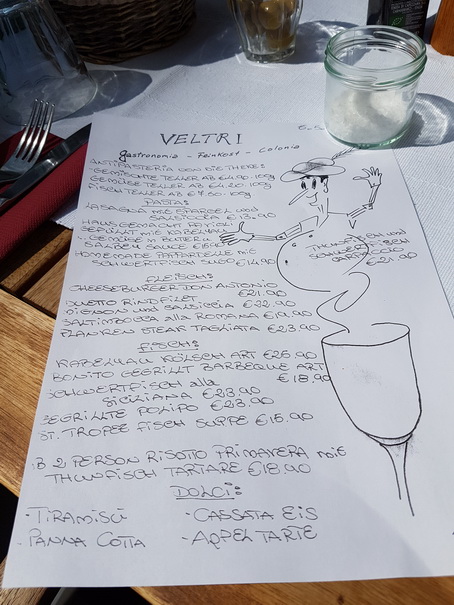 VELTRI
Gastronomia - Feinkost - Colonia
ANTIPASTERIA VON DIE THEKE:
GEMISCHTE TELLER AB €4.90-100g
GEMÜSE TELLER AB €4.20-100g
FISCH TELLER AB €7.50-100g
PASTA:
LASAGNA MIT SPARGEL UND
SALSICCIA €13.90
HAUSGEMACHT
GEFÜLLT MIT KABELJAU
GEMÜSE IN BUTTER
SALBEY
HOMEMADE PAPPARDELLE MIT
SCHWERTFISCH SUGO €14.90
THUNFISCH UND
€21.90
FLEISCH:
CHEESEBURGER DON ANTONIO
€21.90
DUETTO RINDFILET
MIGNON UND SALSICCIA €22.90
SALTIMBOCCA alla ROMANA €19.90
FLANKEN STEAK TAGLIATA €23.90
FISCH:
KABELJAU KÖLSCH ART €26.90
BONITO GEGRILLT BARBEQUE ART
€18.90
SCHWERTFISCH alla
SICILIANA €23.90
GEGRILLTE POLIPO €23.90
ST. TROPEE FISCH SUPPE €15.90
AB 2 PERSON RISOTTO PRIMAVERA MIT
THUNFISCH TARTARE €18.90
DOLCI:
-TIRAMISÙ
-CASSATA EIS
-PANNA COTTA
-APPEL TARTE